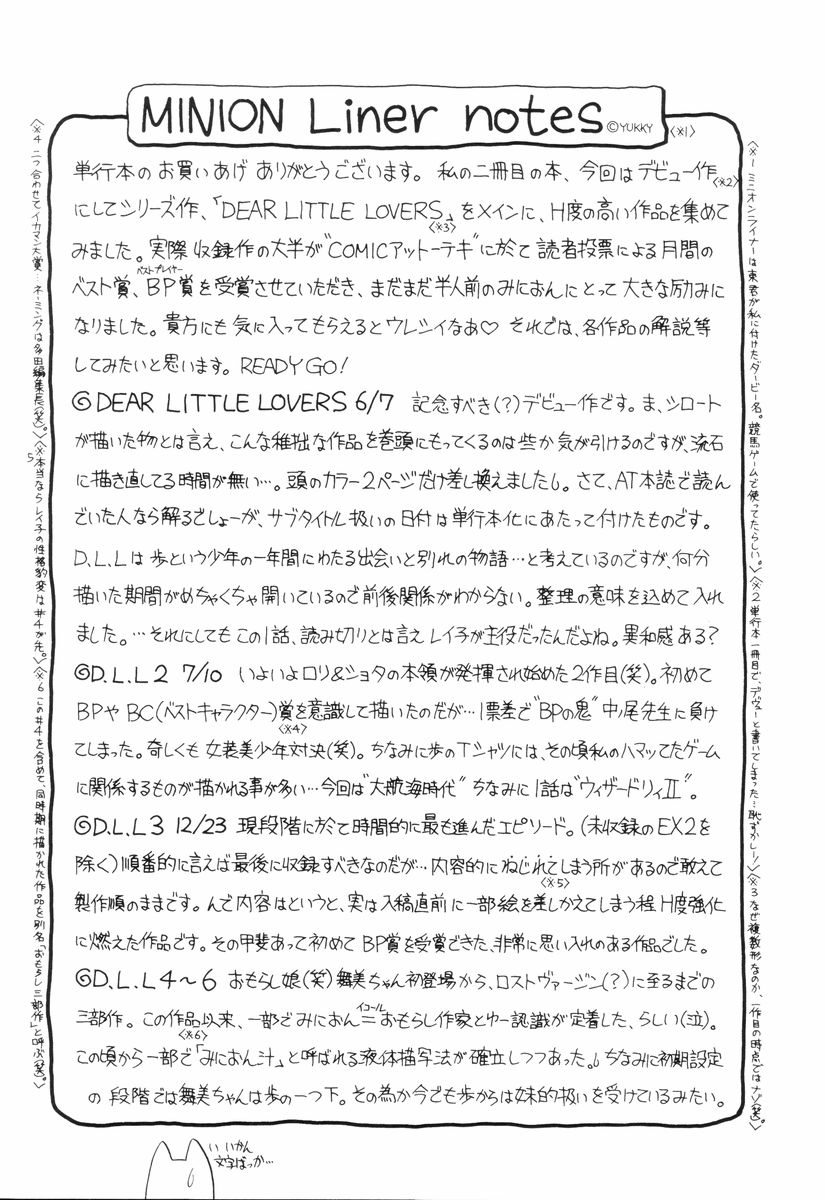 MINION Liner notes ©YUKKY 〈※1〉
単行本のお買いあげありがとうございます。私の二冊目の本、今回はデビュー作〈※2〉
にしてシリーズ作、「DEAR LITTLE LOVERS」をメインに、H度の高い作品を集めて
みました。実際収録作の大半が〈※3〉"COMICアットーテキ"に於て読者投票による月間の
ベスト賞、BP賞(ベストプレイヤー)を受賞させていただき、まだまだ半人前のみにおんにとって大きな励みに
なりました。貴方にも気に入ってもらえるとウレシイなあ♡ それでは、各作品の解説等
してみたいと思います。READY GO!
◎DEAR LITTLE LOVERS 6/7 記念すべき(?)デビュー作です。ま、シロート
が描いた物とは言え、こんな稚拙な作品を巻頭にもってくるのは些か気が引けるのですが、流石
に描き直してる時間が無い…。頭のカラー2ページだけ差し換えました。さて、AT本誌で読ん
でいた人なら解るでしょーが、サブタイトル扱いの日付は単行本化にあたって付けたものです。
D.L.Lは歩という少年の一年間にわたる出会いと別れの物語…と考えているのですが、何分
描いた期間がめちゃくちゃ開いているので前後関係がわからない。整理の意味を込めて入れ
ました。…それにしてもこの1話、読み切りとは言えレイ子が主役だったんだよね。異和感ある?
◎D.L.L2 7/10 いよいよロリ&ショタの本領が発揮され始めた2作目(笑)。初めて
BPやBC(ベストキャラクター)賞を意識して描いたのだが…1票差で"BPの鬼"中ノ尾先生に負け
てしまった。奇しくも〈※4〉女装美少年対決(笑)。ちなみに歩のTシャツには、その頃私のハマッてたゲーム
に関係するものが描かれる事が多い…今回は"大航海時代"ちなみに1話は"ウィザードリィII"。
◎D.L.L3 12/23 現段階に於て時間的に最も進んだエピソード。(未収録のEX2を
除く)順番的に言えば最後に収録すべきなのだが…内容的にねじれてしまう所があるので敢えて
製作順のままです。んで内容はというと、実は入稿直前に一部絵を〈※5〉差しかえてしまう程H度強化
に燃えた作品です。その甲斐あって初めてBP賞を受賞できた、非常に思い入れのある作品でした。
◎D.L.L4〜6 おもらし娘(笑)舞美ちゃん初登場から、ロストヴァージン(?)に至るまでの
三部作。この作品以来、一部でみにおん=(イコール)おもらし作家とゆー認識が定着した、らしい(泣)。
この頃から一部で〈※6〉「みにおん汁」と呼ばれる液体描写法が確立しつつあった。ちなみに初期設定
の段階では舞美ちゃんは歩の一つ下。その為か今でも歩からは妹的扱いを受けているみたい。
〈※1 ミニオンライナーは東君が私に付けたダービー名。競馬ゲームで使ってたらしい。〉〈※2 単行本一冊目で、デヴューと書いてしまった…恥ずかしー!〉〈※3 なぜ複数形なのか、一作目の時点ではナゾ(笑)。〉
〈※4 二つ合わせてイカマン大賞…ネーミングは多田編集長(笑)。〉〈※5 本当ならレイ子の性格豹変は#4が先。〉〈※6 この#4を含めて、同時期に描かれた作品を別名「おもらし三部作」と呼ぶ(笑)。〉
いいかん
文字ばっか…